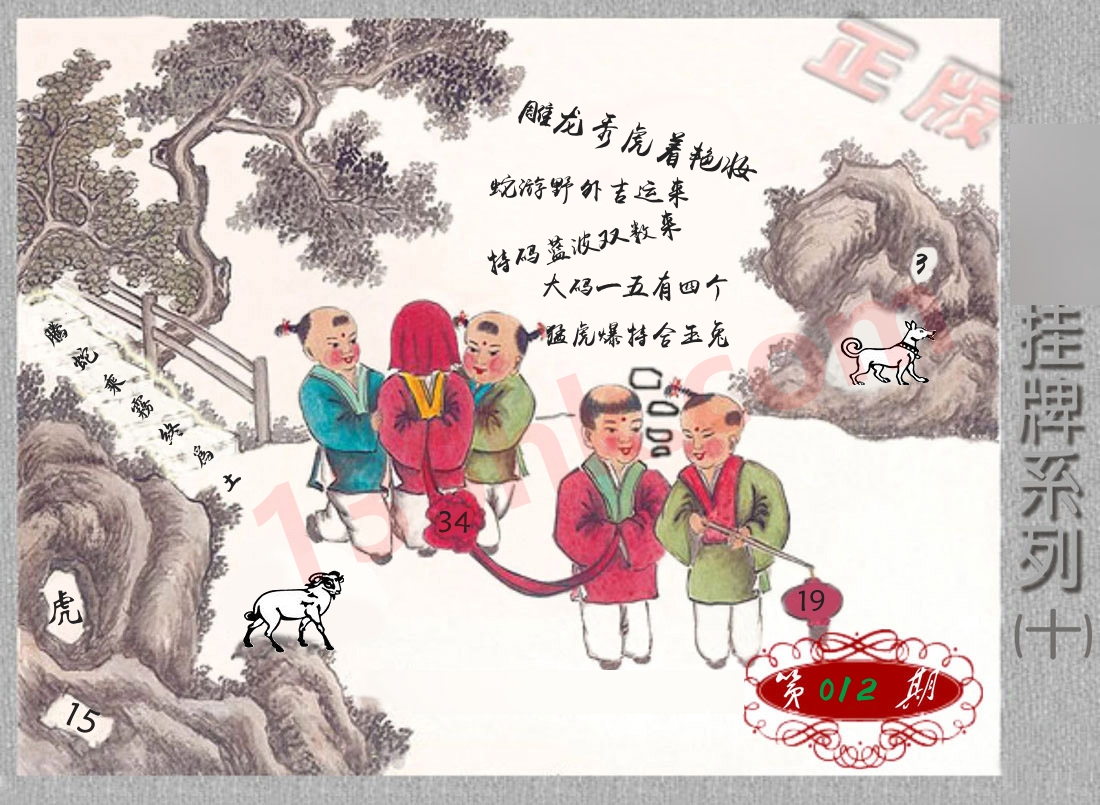 正版
雕龙秀虎着艳妆
蛇游野外吉运来
特码蓝波双数来
大码一五有四个
猛虎爆特合玉兔
3
腾蛇乘霧終爲土
34
19
虎
15
第012期
挂牌系列(十)